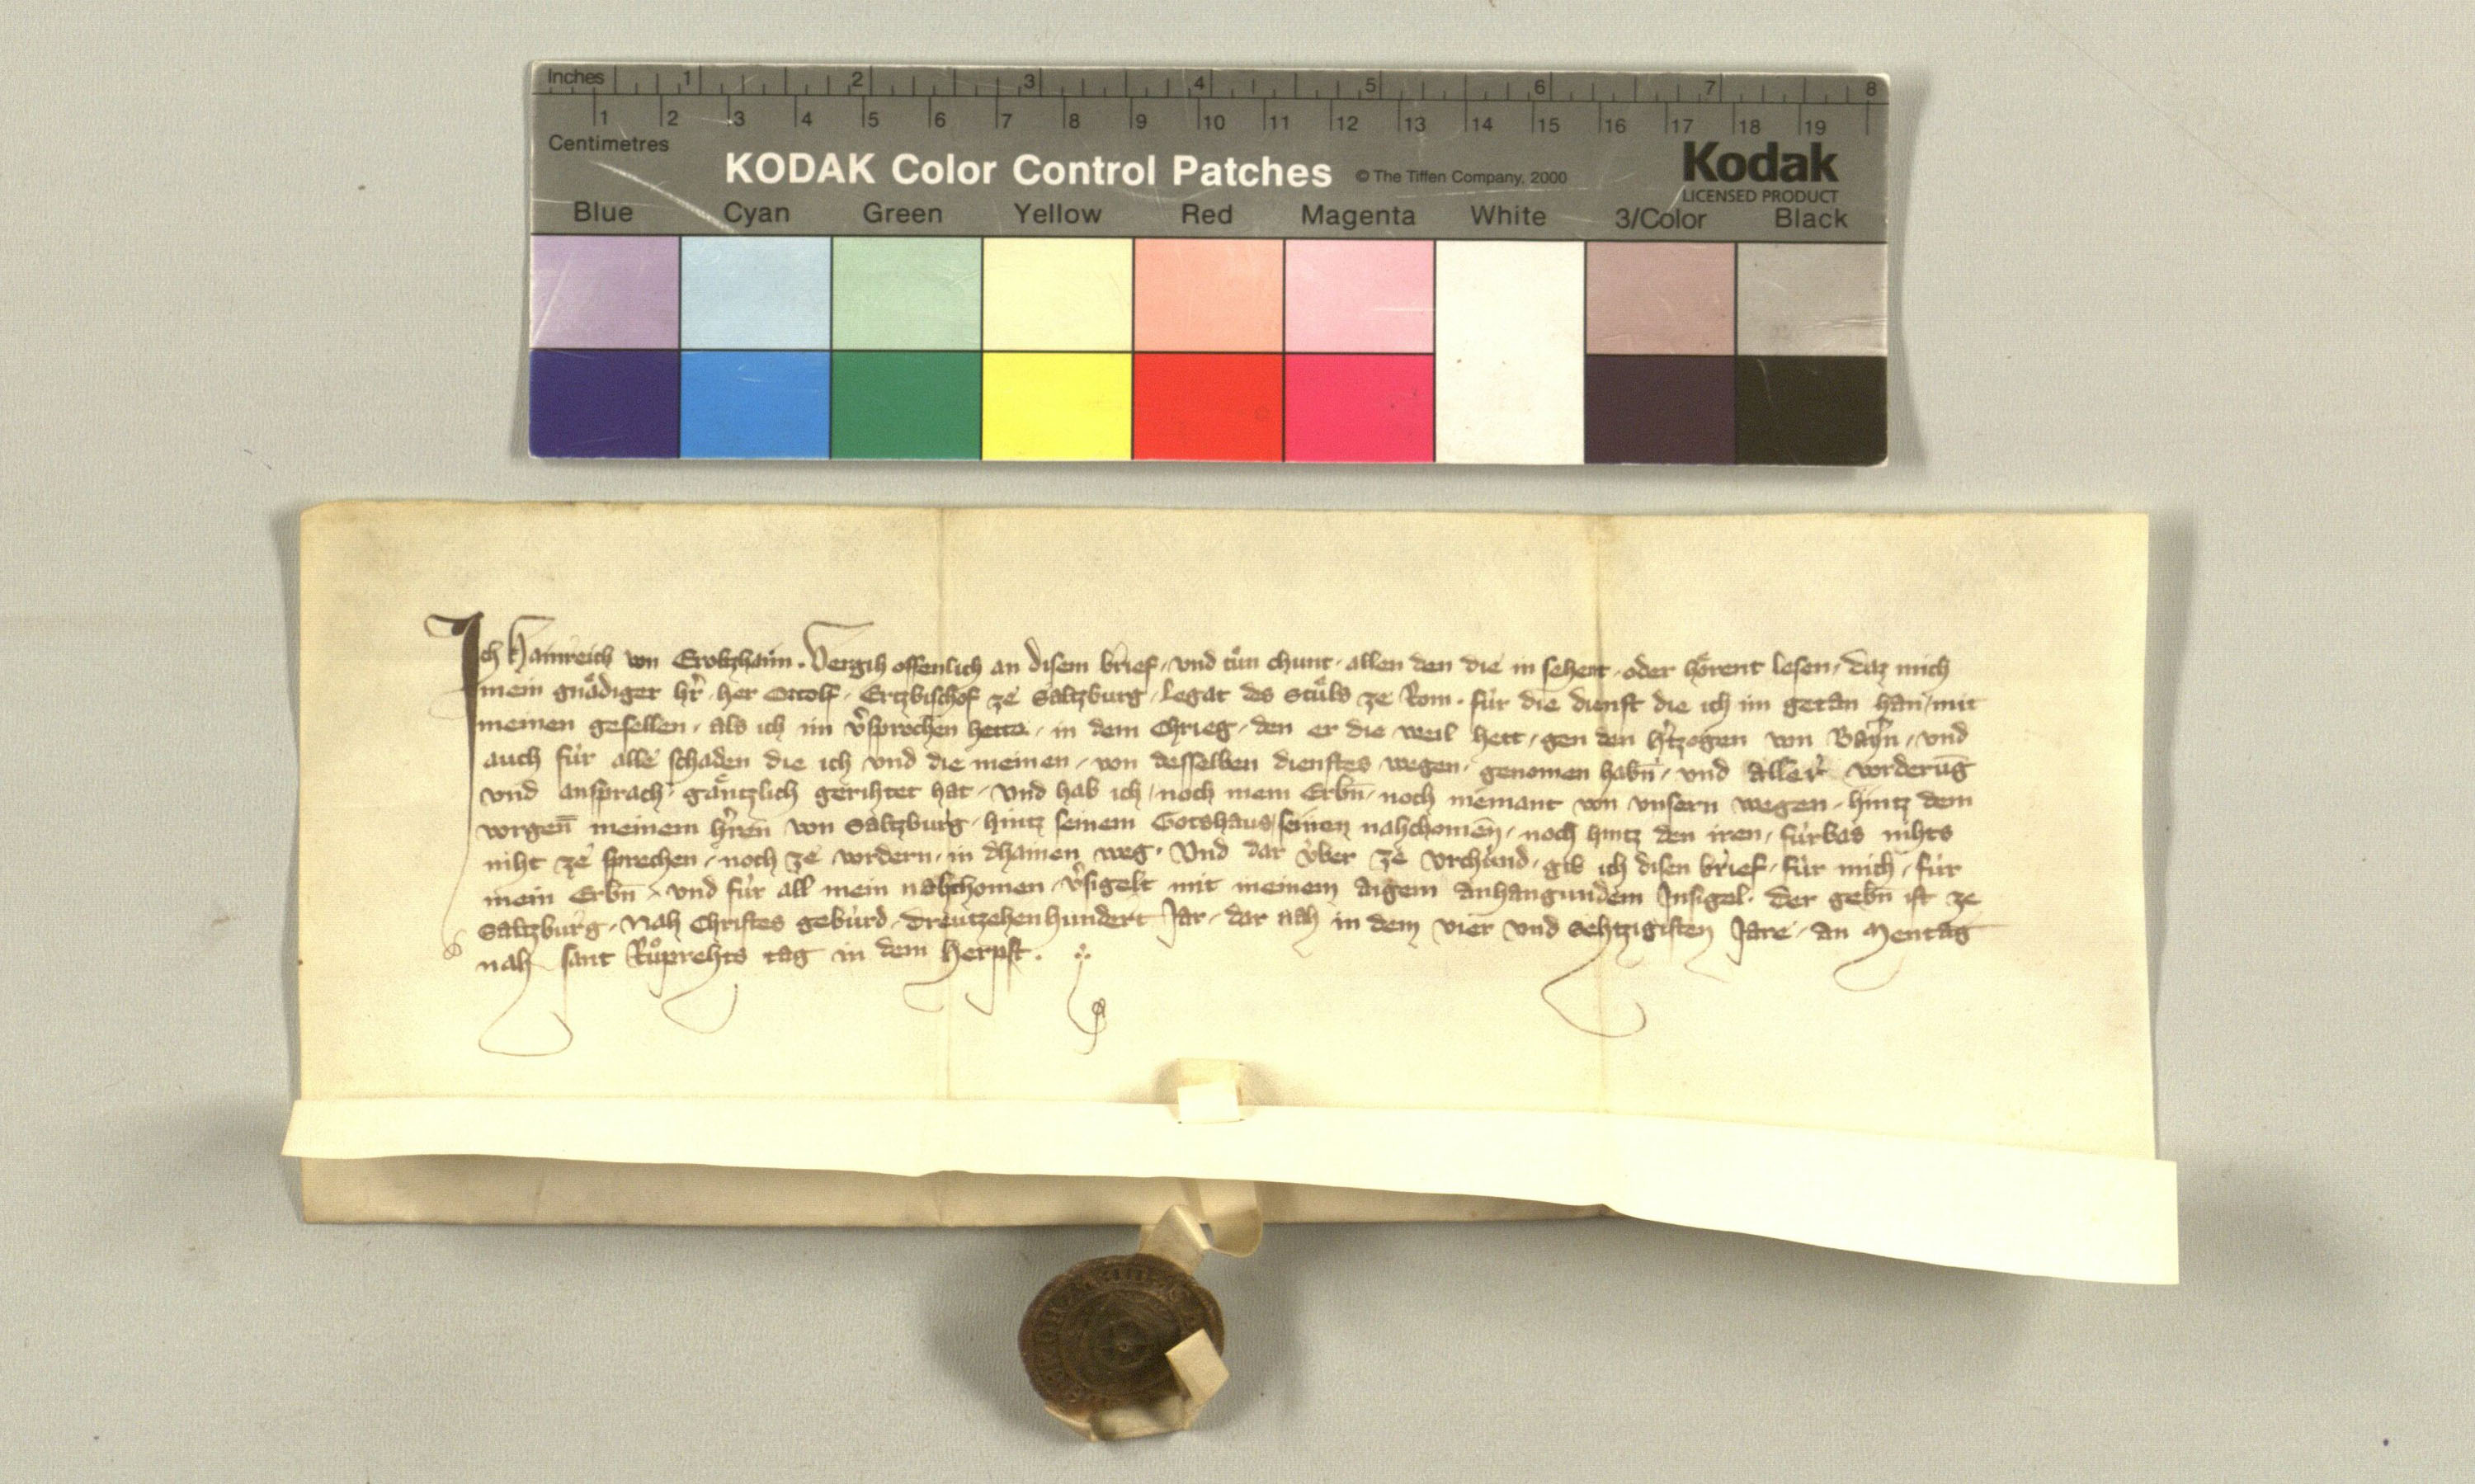 Inches 1 2 3 4 5 6 7 8
1 2 3 4 5 6 7 8 9 10 11 12 13 14 15 16 17 18 19
Centimetres
KODAK Color Control Patches © The Tiffen Company, 2000 Kodak
LICENSED PRODUCT
Blue Cyan Green Yellow Red Magenta White 3/Color Black
Ich Hainreich von . Vergih offenlich an disem brief / vnd tůn chunt / allen den die in sehent / oder hoͤrent lesen / daz mich
mein gnaͤdiger hr̄ / her Ortolf / Ertzbischof ze Saltzburg / Legat des Stůls ze Rom / für die dienst die ich im getan han / mit
meinen gesellen / als ich im v̄sprochen hette / in dem Chrieg / den er die weil hett / gen den h̄tzogen von Bayr̄n / vnd
auch für alle schaden die ich vnd die meinen / von desselben dienstes wegen / genomen habn̄ / vnd aller vorderūg
vnd ansprach / gaͤntzlich gerihtet hat / vnd hab ich / noch mein Erbn̄ / noch niemant von vnsern wegen / hintz dem
vorgen̄ meinem h̄ren von Saltzburg / hintz seinem Gotshaus / seinen nahchomen̄ / noch hintz den iren / fürbas nihts
niht ze sprechen / noch ze vordern / in dhainen weg / Vnd dar vͤber ze vrchünd / gib ich disen brief / für mich / für
mein Erbn̄ / vnd für all mein nahchomen / v̄sigelt mit meinem aigem anhangundem Insigel / Der gebn̄ ist ze
Saltzburg / Nah Christes gebürd / Dreutzehenhundert Jar / dar nah in dem vier vnd Sehtzigisten Jare / an Mentag
nah sant Růprehts tag in dem Herpst .